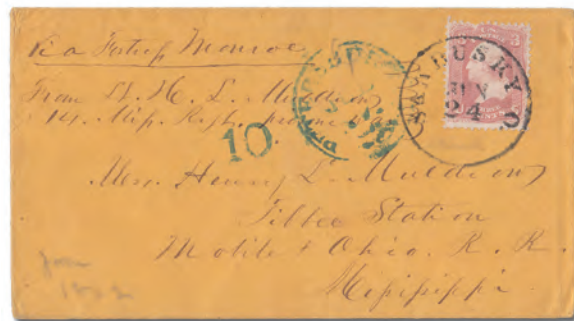 Via Fortress Monroe
From Lt. H. L. Muldrow
14. Miſs. Regt.
10
SANDUSKY O.
24
3
Mrs. Henry L. Muldrow
Tibbee Station
Mobile & Ohio. R. R.
Miſsiſsippi